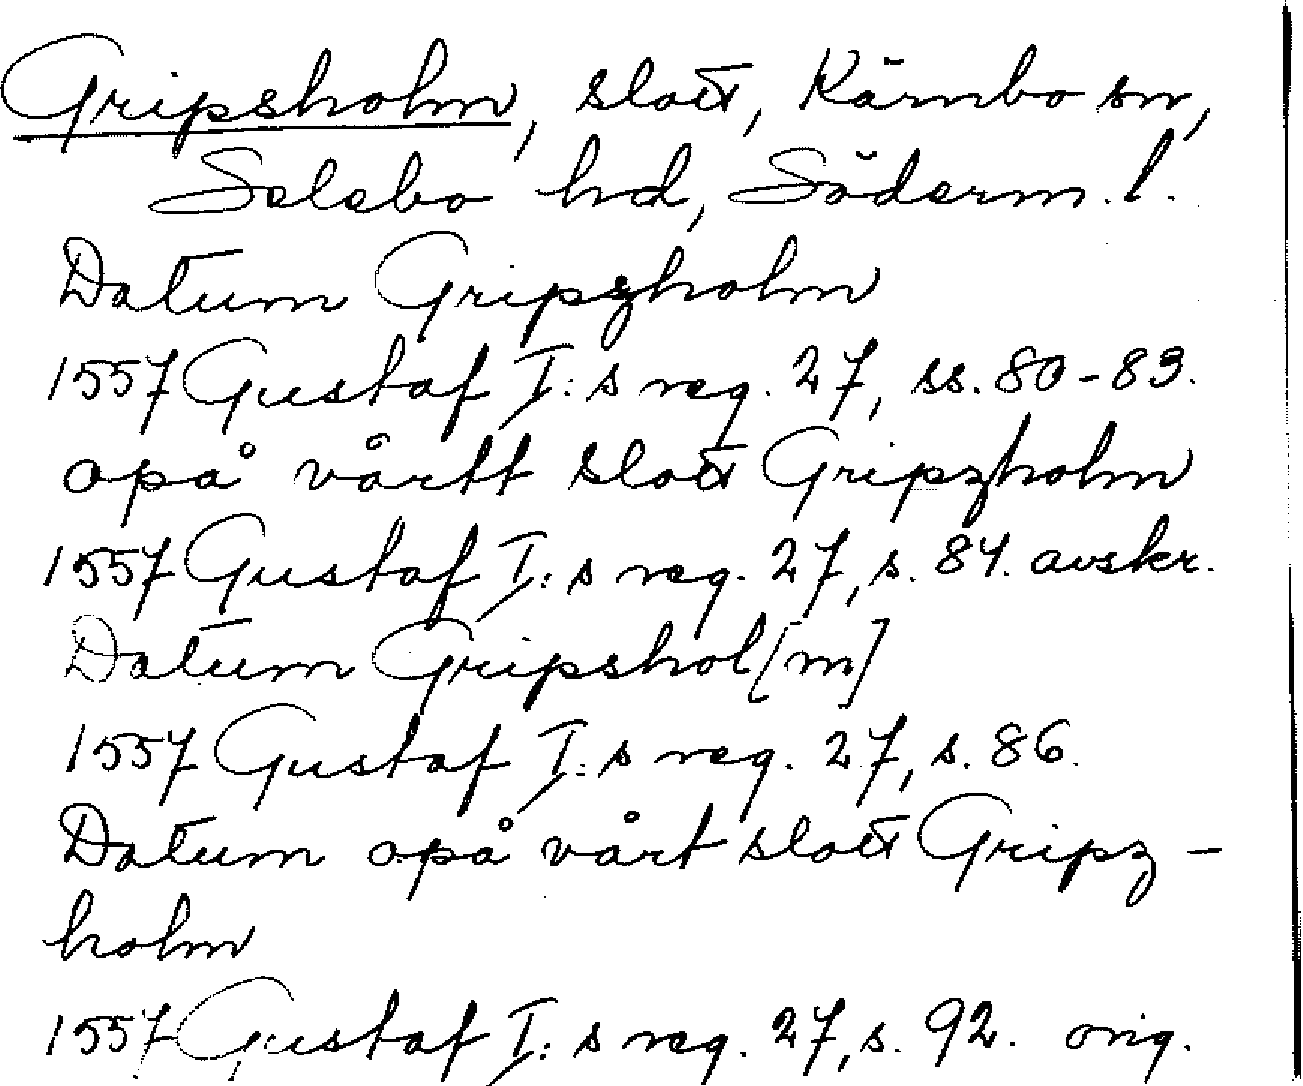 Gripsholm, slott, Kärnbo sn,
Selebo hd, Söderm. l.
Datum Gripszholm
1557 Gustaf I:s reg. 27, ss. 80-83.
opå vårtt slott Gripzholm
1557 Gustaf I:s reg. 27, s. 84. avskr.
Datum Gripshol[m]
1557 Gustaf I:s reg. 27, s. 86.
Datum opå vårt slott Gripz-
holm
1557 Gustaf I:s reg. 27, s. 92. orig.